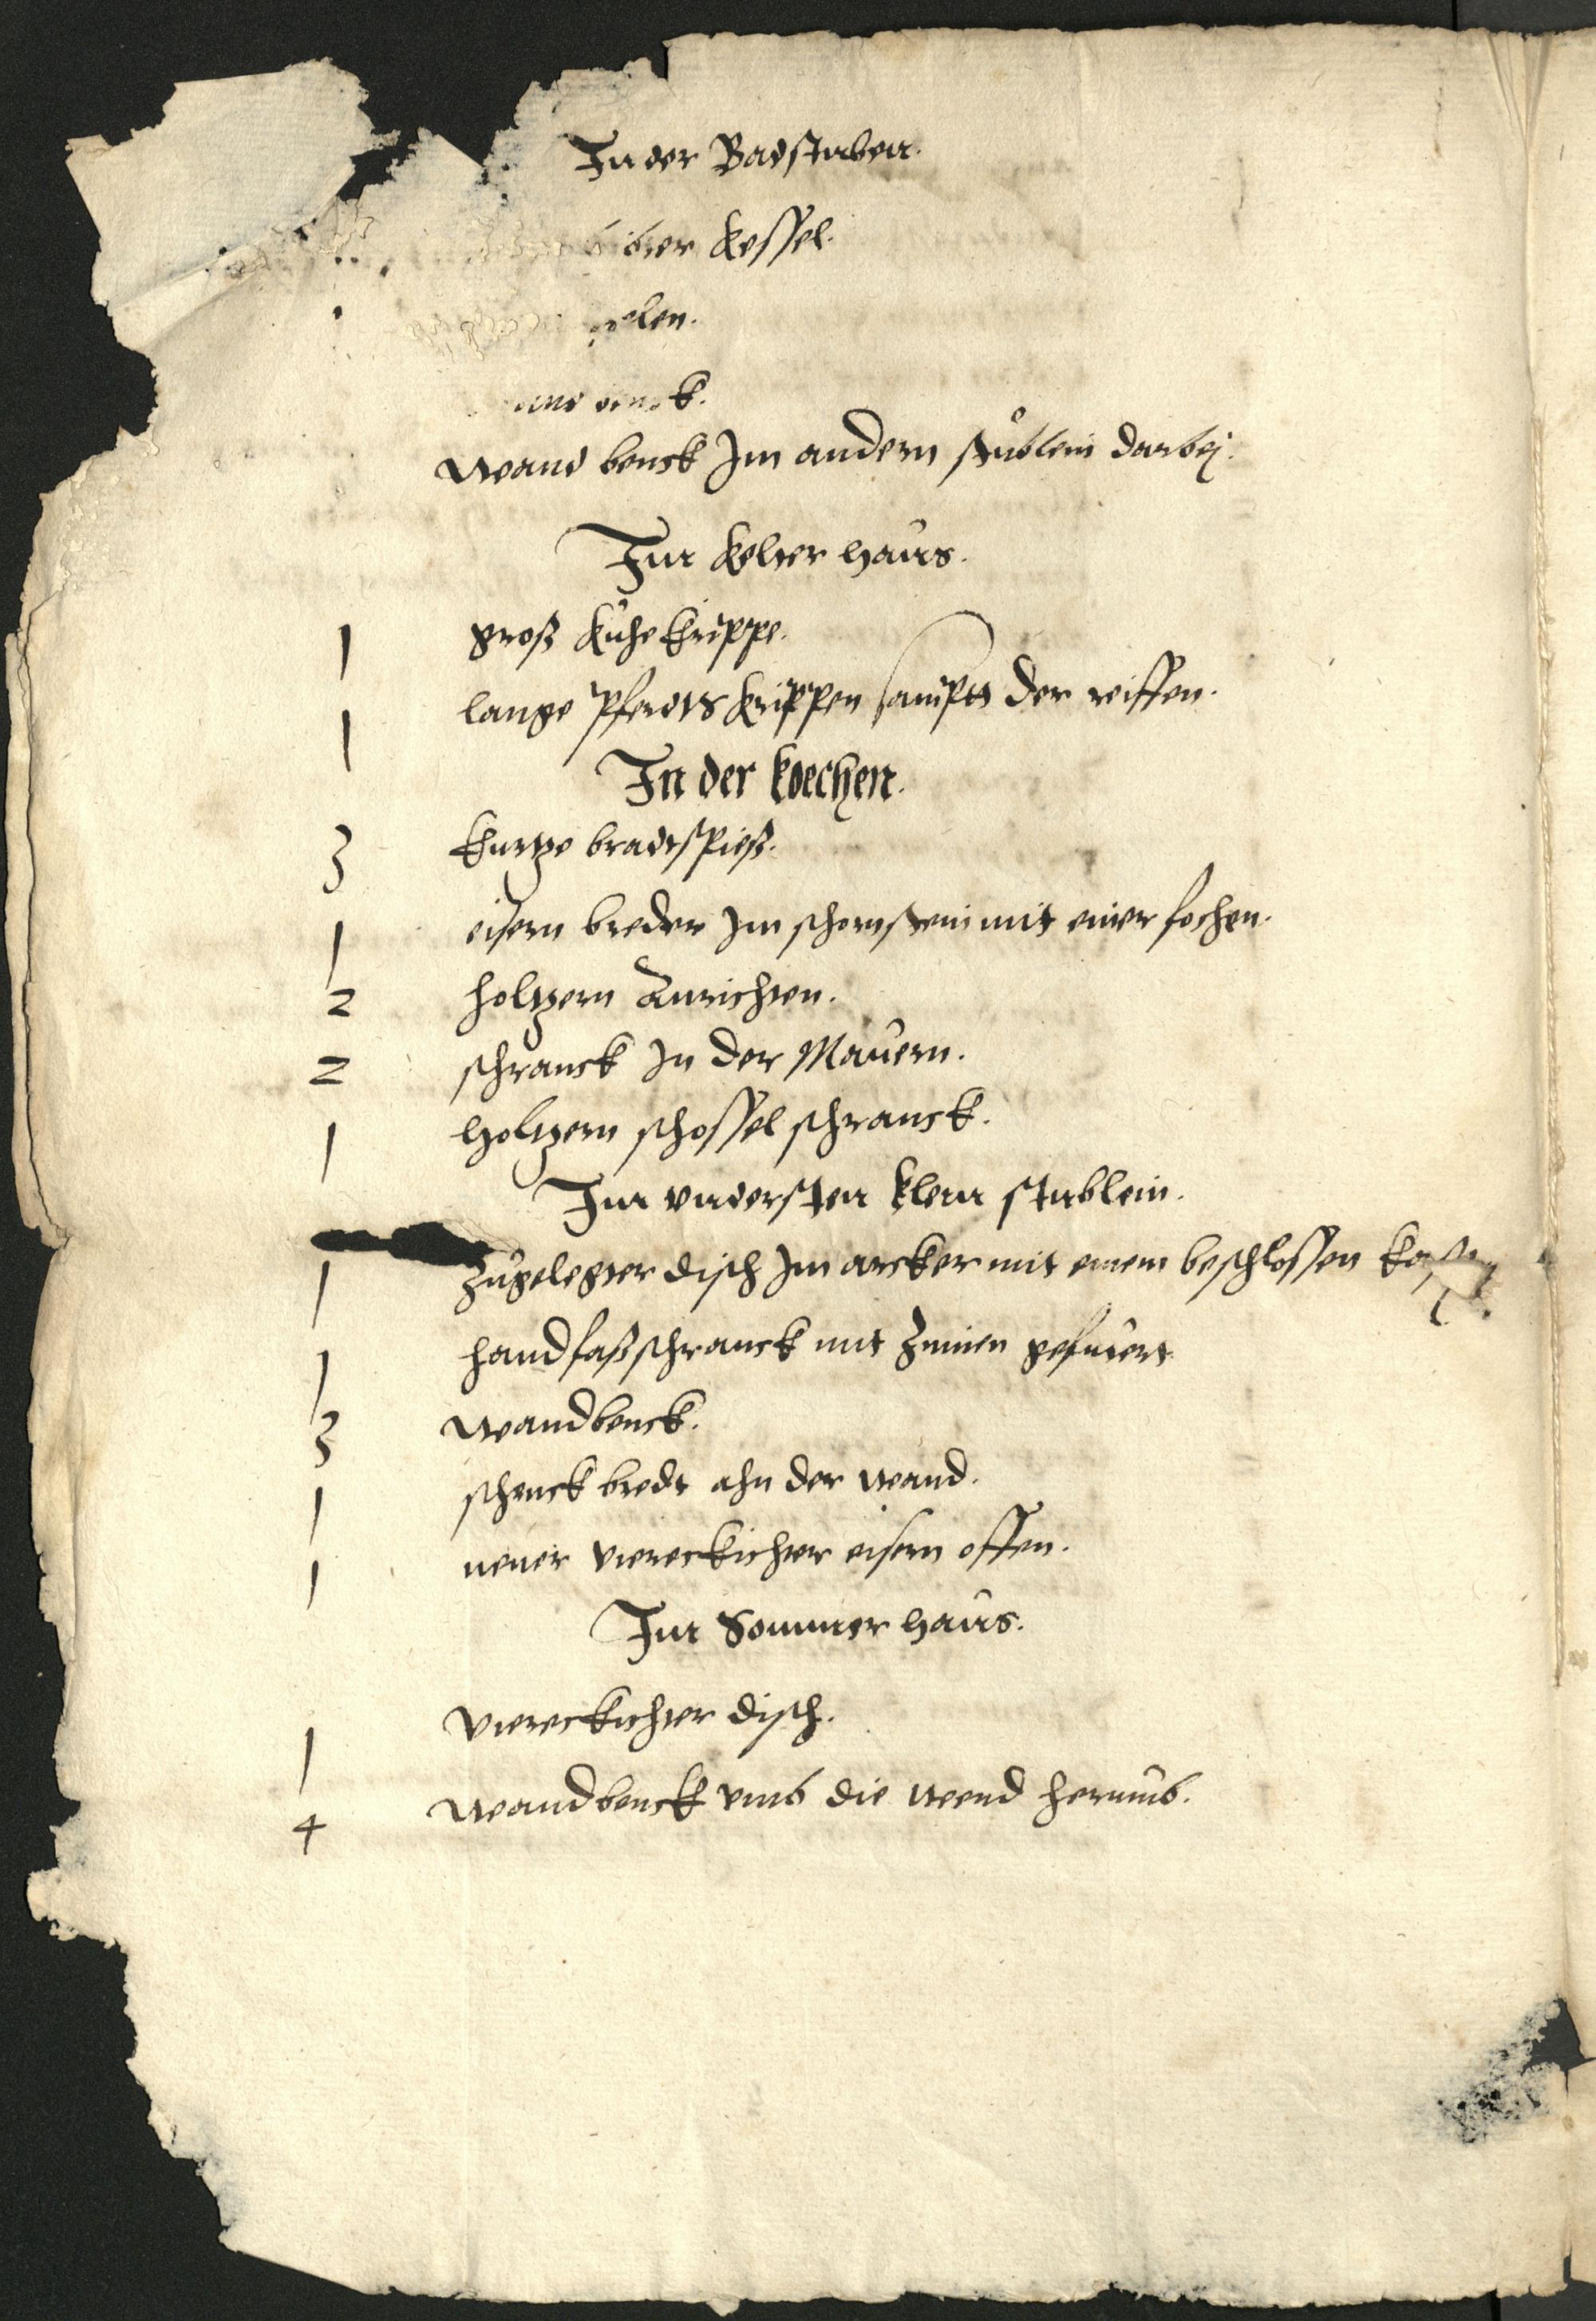 In der Badstuben.
Kessel.
wand benck Im andern stublein darbej.
Im Kelter haus.
1 groß Kuhe krippe.
1 lange Pferdts Krippen sampt der reiffen.
In der koechen.
3 kurtze bradtspieß.
1 eisern breder Im schornstein mit einer
2 holtzern Anrichten.
2 schranck In der Mauern.
1 holtzern schossel schranck.
Im vndersten klein stublein.
1 Zugelegter disch Im arcker mit einem beschlossen
1 handfaßschranck mit Zinnen gefuert
3 wandbenck.
1 schenck bredt ahn der wand.
1 neuer viereckichter eisern offen.
Im Sommer haus.
1 viereckichter disch.
4 wandbenck vmb die wend herumb.